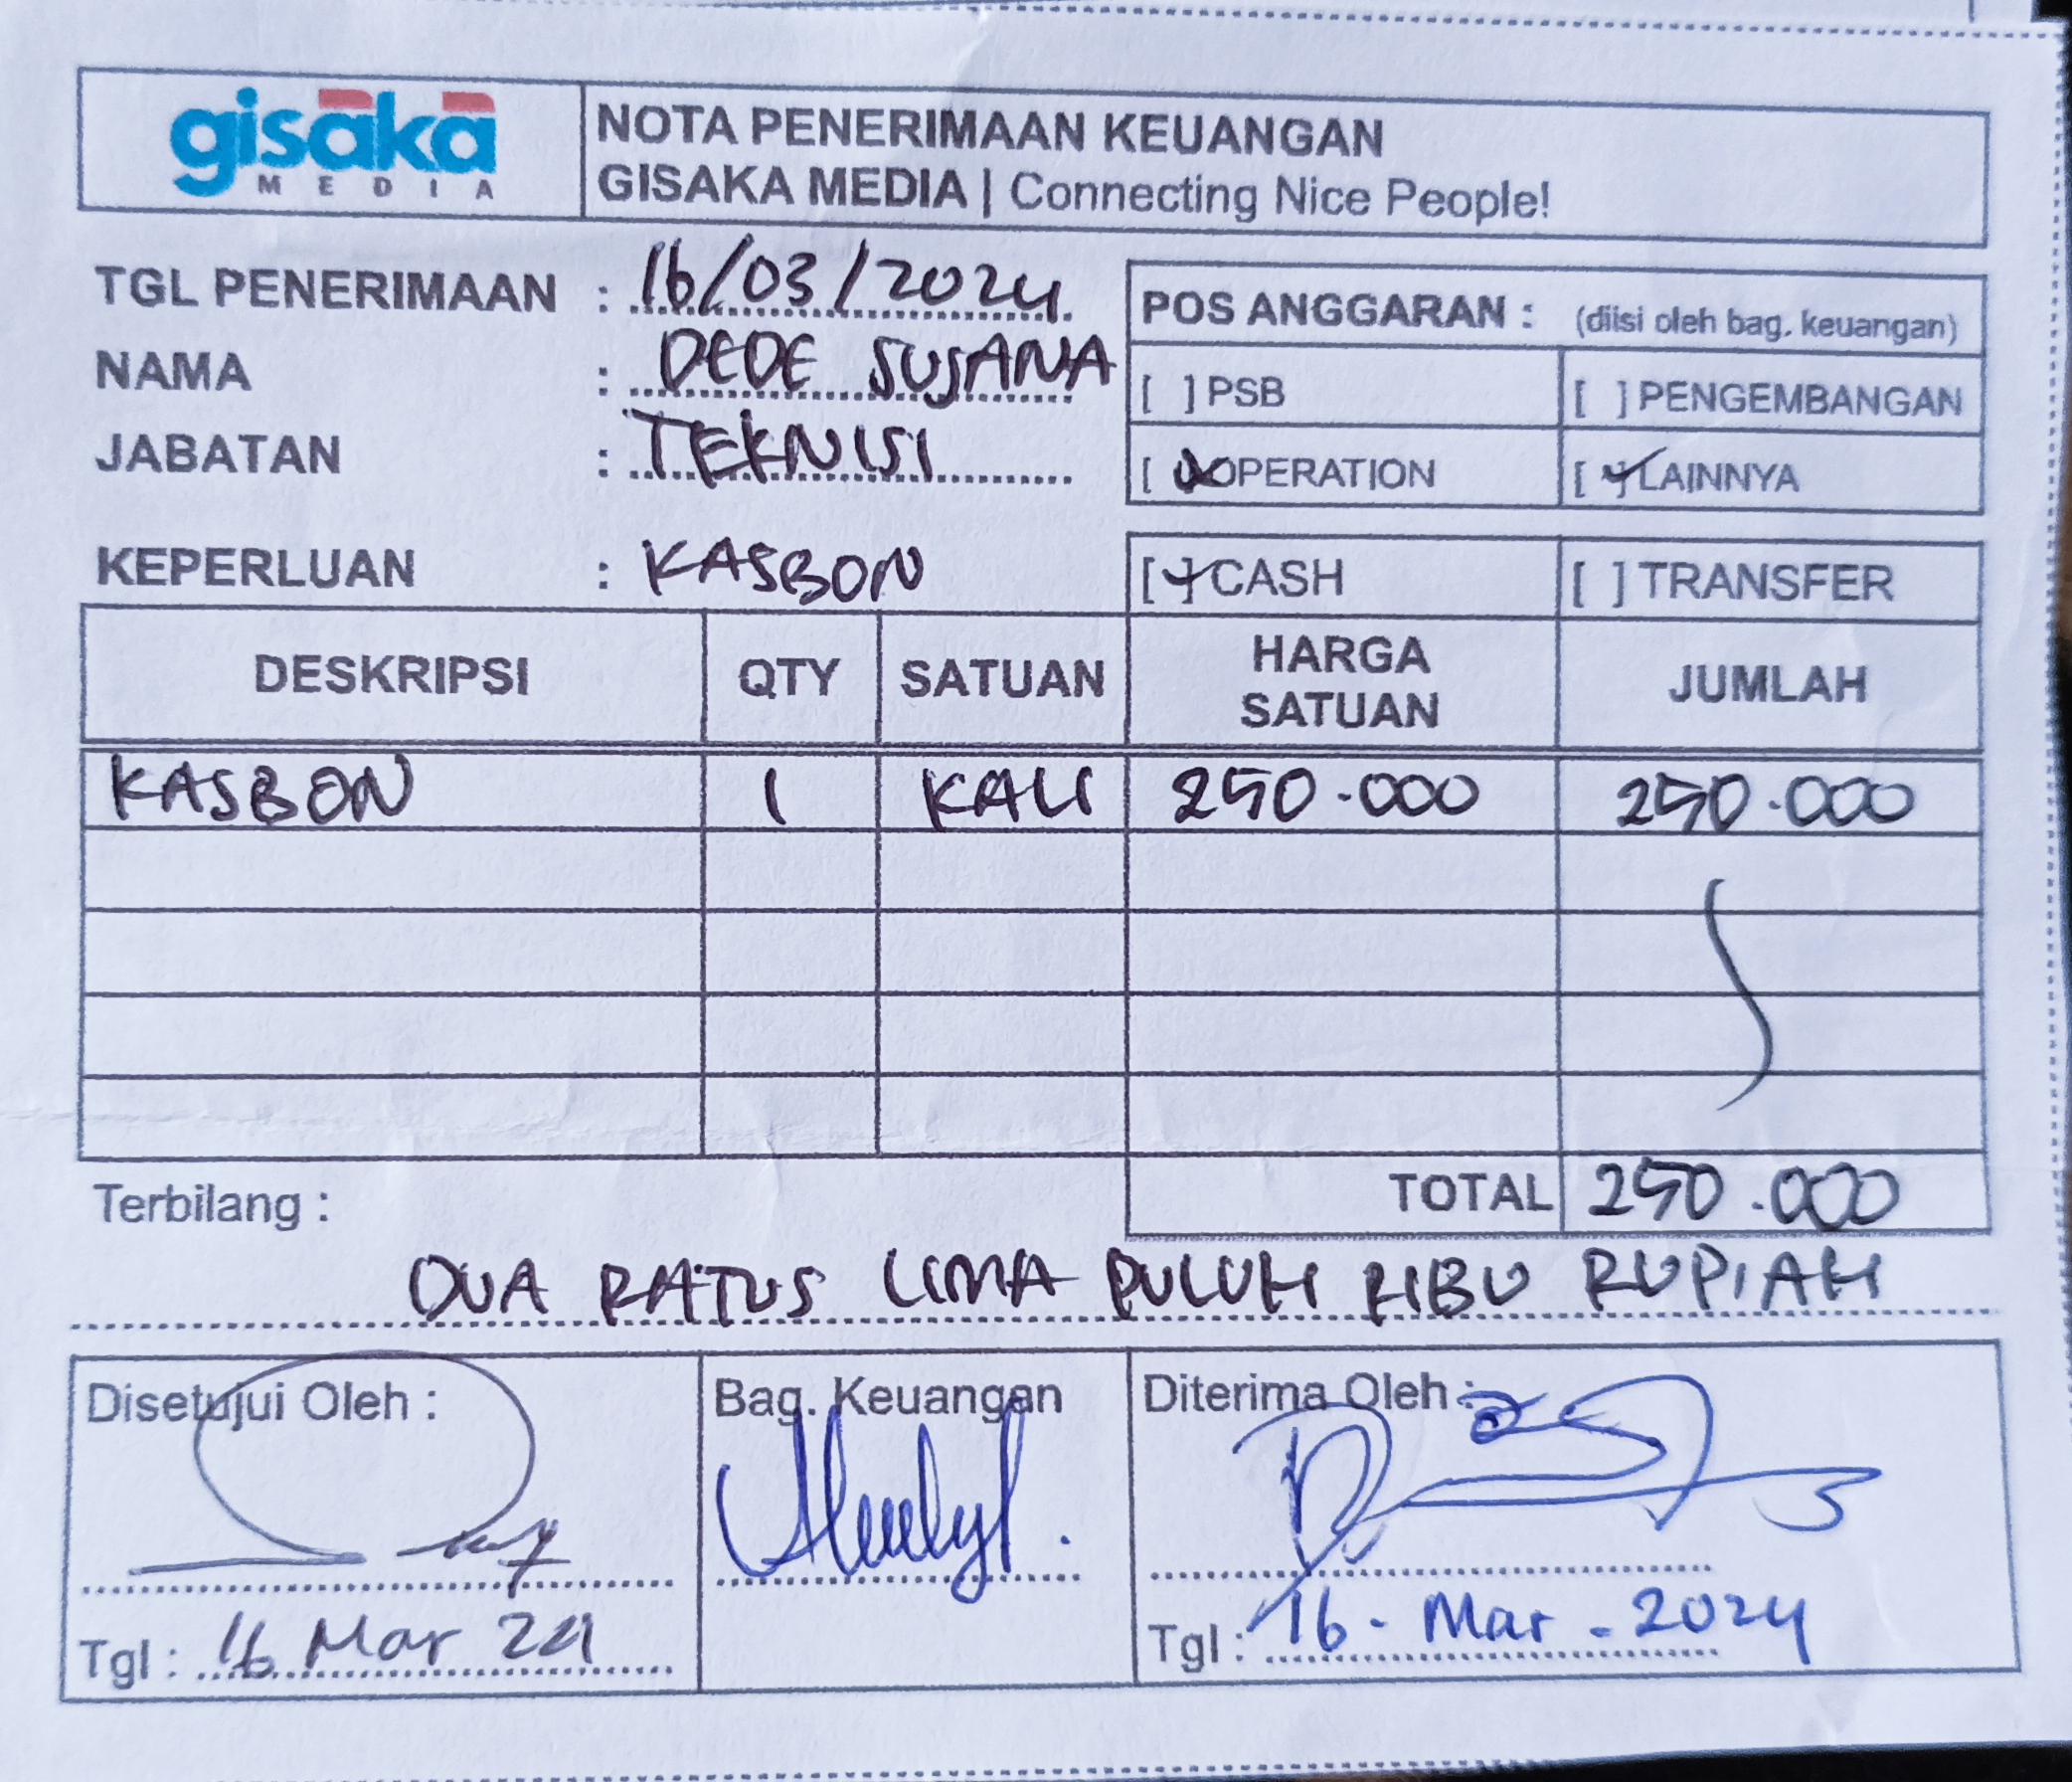 gisaka
MEDIA
NOTA PENERIMAAN KEUANGAN
GISAKA MEDIA | Connecting Nice People!
TGL PENERIMAAN : 16/03/2024
NAMA : DEDE SUSANA
JABATAN : TEKNISI
KEPERLUAN : KASBON
POS ANGGARAN : (diisi oleh bag. keuangan)
[ ] PSB [ ] PENGEMBANGAN
[ ] OPERATION [✓] LAINNYA
[✓] CASH [ ] TRANSFER
DESKRIPSI QTY SATUAN HARGA SATUAN JUMLAH
KASBON 1 KALI 250.000 250.000
TOTAL 250.000
Terbilang :
DUA RATUS LIMA PULUH RIBU RUPIAH
Disetujui Oleh : Bag. Keuangan Diterima Oleh :
Tgl : 16 Mar 24 Tgl : 16 - Mar - 2024